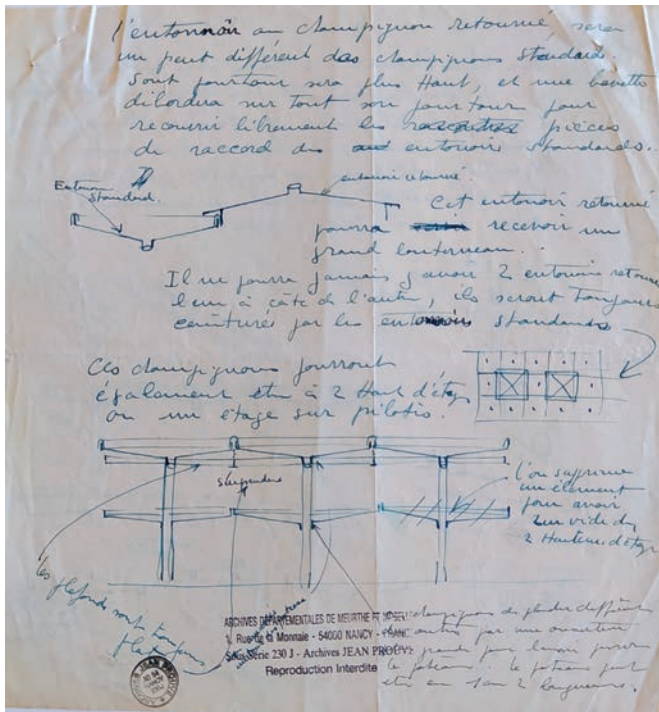 l'entonnoir au champignon retourné sera
un peut différent des champignons standards
Sont pourtour sera plus Haut, et une bavette
débordera sur tout son pourtour pour
recouvrir librement les pièces
de raccord des entonnoirs standards.
Entonnoir
Standard.
entonnoir retourné.
Cet entonnoir retourné
pourra recevoir un
grand lanterneau.
Il ne pourra jamais y avoir 2 entonnoirs retournés
l'un à côté de l'autre, ils seront toujours
ceinturés par les entonnoirs standards
Ces champignons pourront
également être à 2 Haut d'étage
ou un étage sur pilotis.
l'on supprime
un élément
pour avoir
un vide de
2 Hauteurs d'étage
les plafonds sont toujours
plats
ARCHIVES DÉPARTEMENTALES DE MEURTHE ET MOSELLE
1, Rue de la Monnaie - 54000 NANCY - FRANCE
Sous-série 230 J - Archives JEAN PROUVÉ
Reproduction Interdite
champignons de plancher différents
des autres par une ouverture
grande pour laisser passer
le poteau. le poteau peut
être en 1 ou 2 longueurs.
ARCHIVES JEAN PROUVÉ